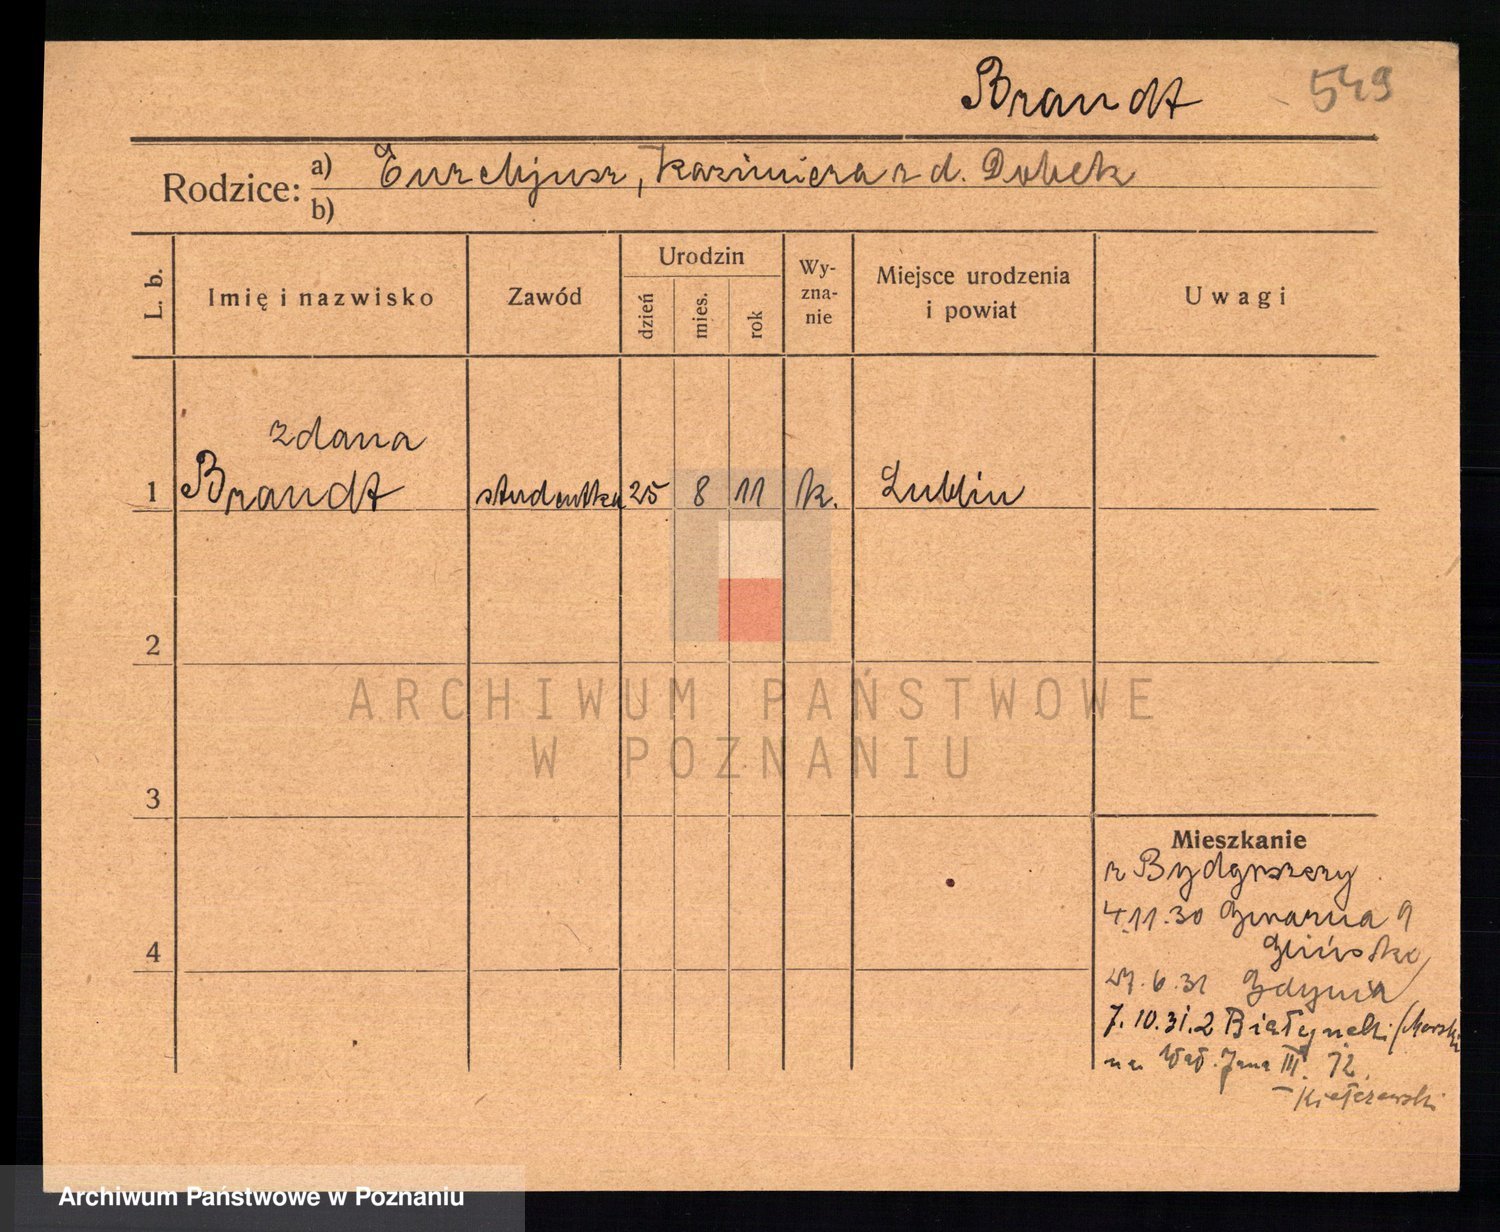 Brandt 549
Rodzice: a) Eurchjusz, Kazimiera z d. Dobek
b)
L. b. Imię i nazwisko Zawód Urodzin dzień mies. rok Wy-zna-nie Miejsce urodzenia i powiat Uwagi
zdana
1 Brandt studentka 25 8 11 k. Lublin
2
ARCHIWUM PAŃSTWOWE
W POZNANIU
3
Mieszkanie
z Bydgoszczy
4.11.30 Gwarna 9
4 Glińska
27.6.31 Gdynia
7.10.31. 2 Białynicki /Morski
na Wał. Jana III. 12.
Kiełczewski
Archiwum Państwowe w Poznaniu